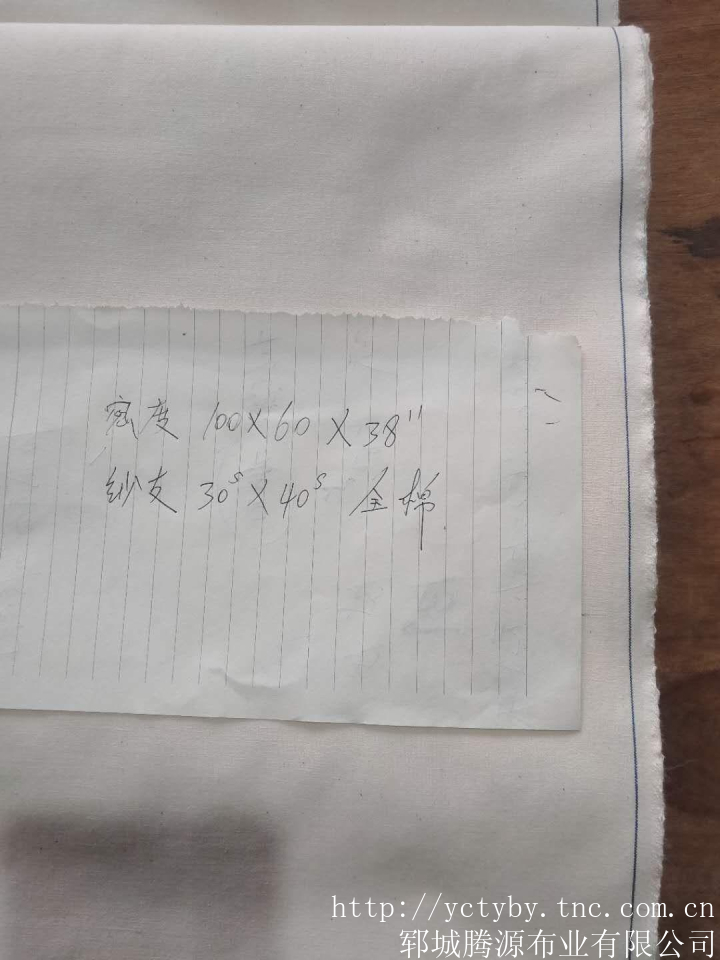 密度 100X60X38"
纱支 30ˢX40ˢ 全棉
http://yctyby.tnc.com.cn
郓城腾源布业有限公司